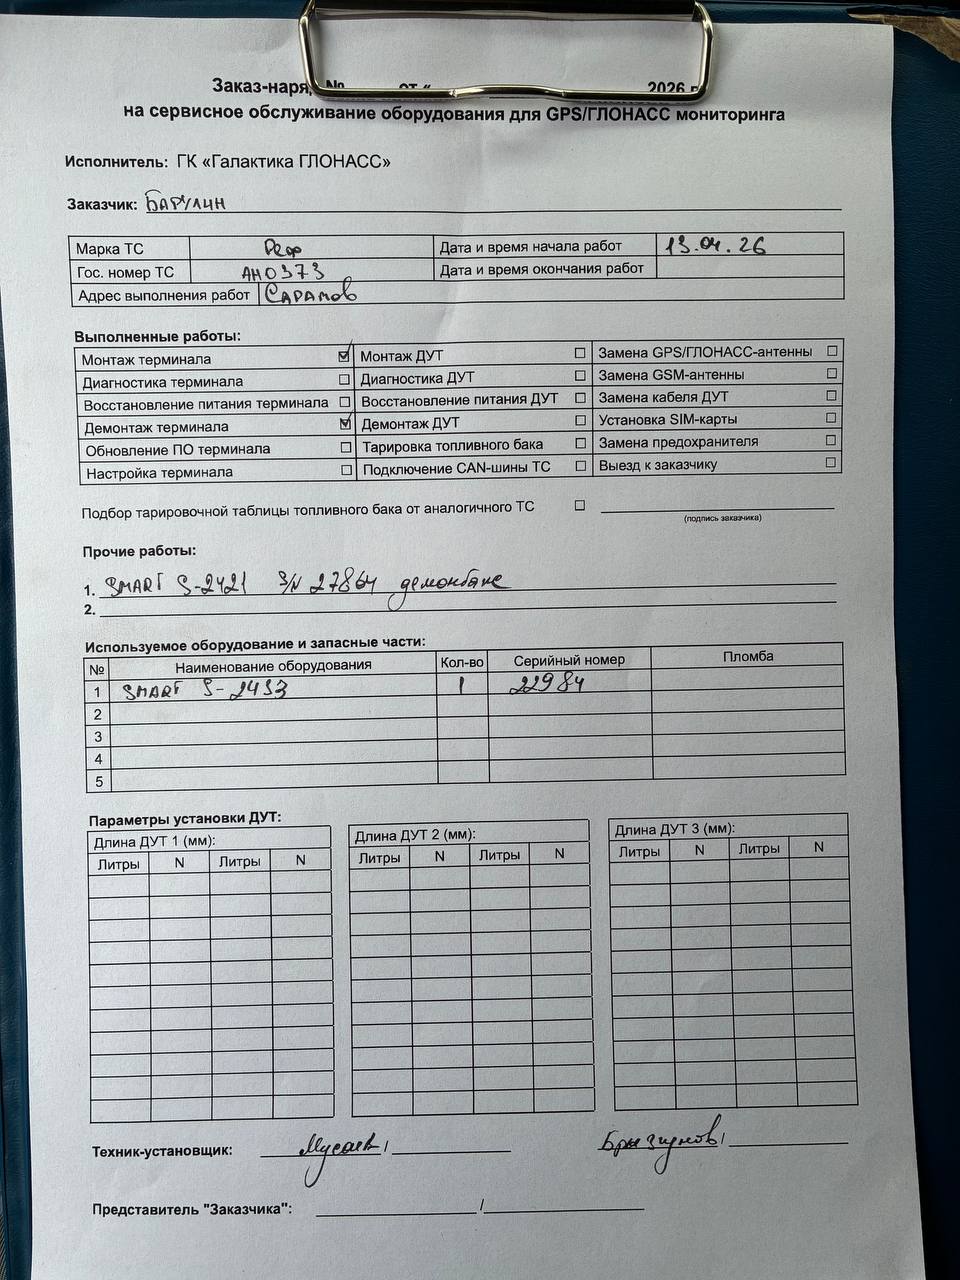 Заказ-наряд № от « 2026 г
на сервисное обслуживание оборудования для GPS/ГЛОНАСС мониторинга
Исполнитель: ГК «Галактика ГЛОНАСС»
Заказчик: БАРУЛИН
Марка ТС Реф Дата и время начала работ 13.04.26
Гос. номер ТС АН0373 Дата и время окончания работ
Адрес выполнения работ Саратов
Выполненные работы:
Монтаж терминала ☑ Монтаж ДУТ ☐ Замена GPS/ГЛОНАСС-антенны ☐
Диагностика терминала ☐ Диагностика ДУТ ☐ Замена GSM-антенны ☐
Восстановление питания терминала ☐ Восстановление питания ДУТ ☐ Замена кабеля ДУТ ☐
Демонтаж терминала ☑ Демонтаж ДУТ ☐ Установка SIM-карты ☐
Обновление ПО терминала ☐ Тарировка топливного бака ☐ Замена предохранителя ☐
Настройка терминала ☐ Подключение CAN-шины ТС ☐ Выезд к заказчику ☐
Подбор тарировочной таблицы топливного бака от аналогичного ТС ☐
(подпись заказчика)
Прочие работы:
1. SMART S-2421 S/N 27864 демонтаж
2.
Используемое оборудование и запасные части:
№ Наименование оборудования Кол-во Серийный номер Пломба
1 SMART S-2433 1 22984
2
3
4
5
Параметры установки ДУТ:
Длина ДУТ 1 (мм): Длина ДУТ 2 (мм): Длина ДУТ 3 (мм):
Литры N Литры N Литры N Литры N Литры N Литры N
Техник-установщик: Мусаев / Брызгунов /
Представитель "Заказчика": /